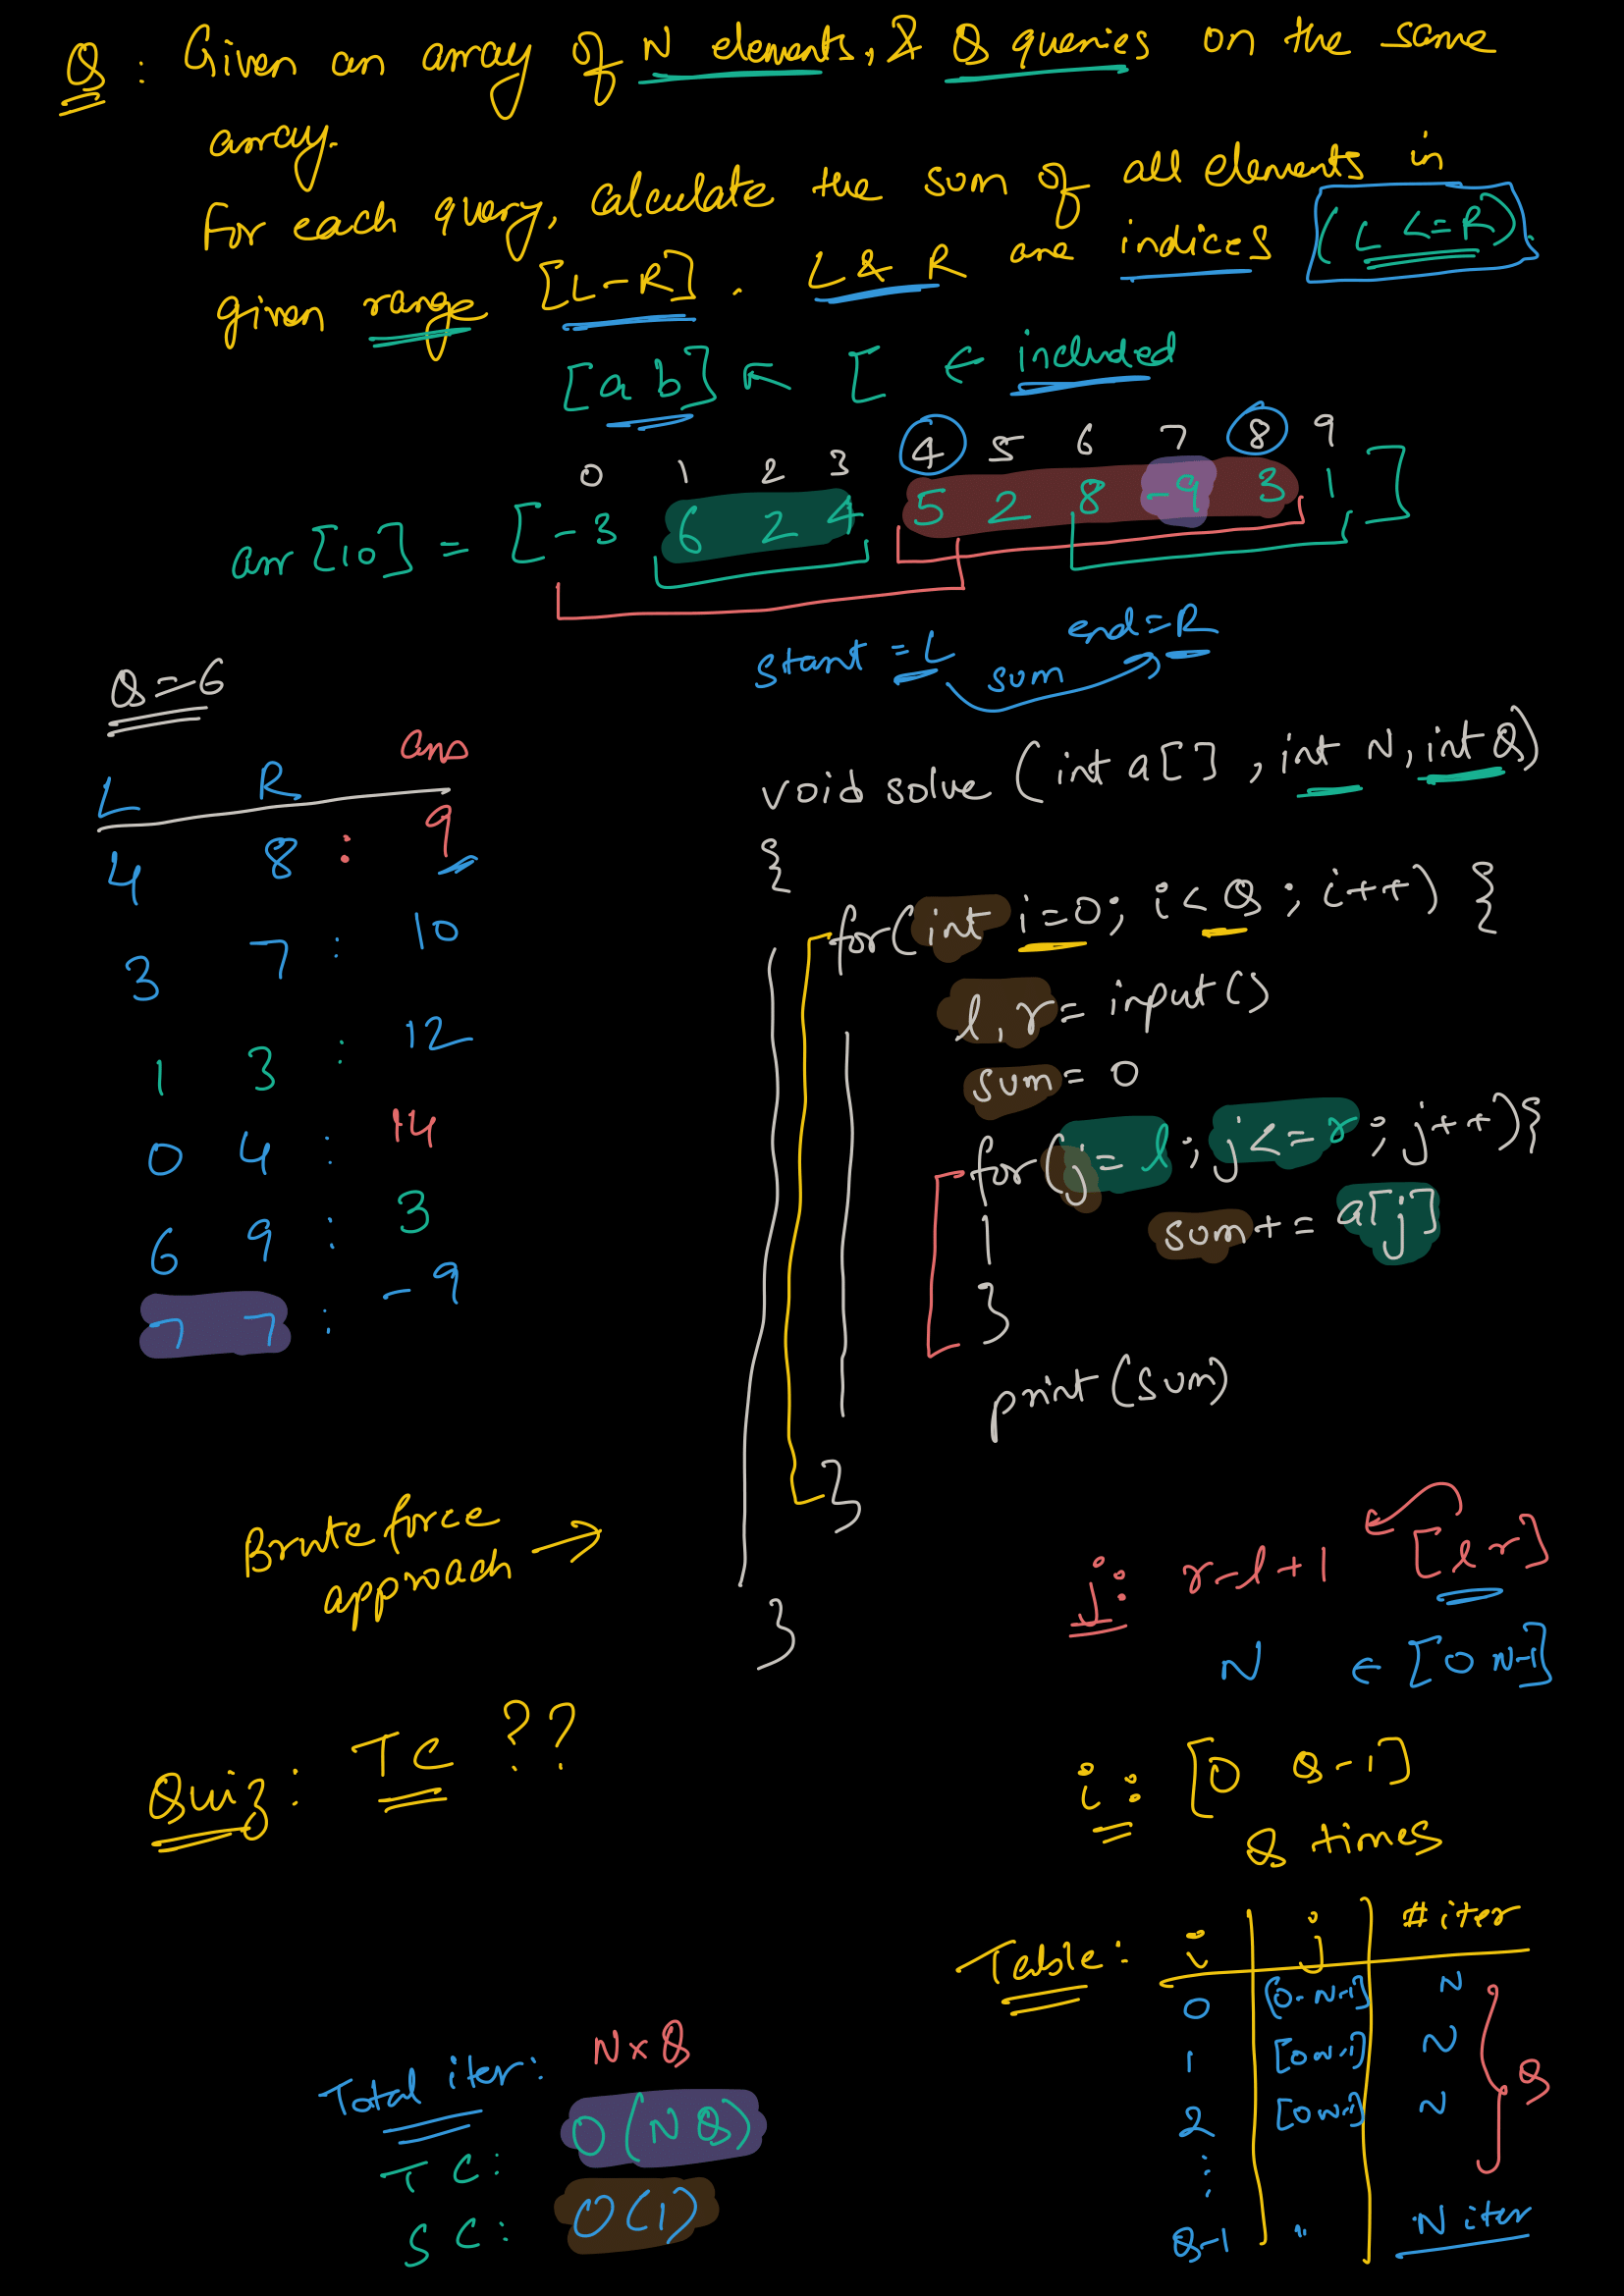 Q : Given an array of N elements, & Q queries on the same
array.
For each query, calculate the sum of all elements in
given range [L-R]. L & R are indices (L <= R).
[a b] ← [ ← included
0 1 2 3 4 5 6 7 8 9
arr [10] = [ -3 6 2 4 5 2 8 -9 3 1 ]
start = L sum end = R
Q = 6
L R ans
4 8 : 9
3 7 : 10
1 3 : 12
0 4 : 14
6 9 : 3
7 7 : -9
void solve (int a[] , int N, int Q)
{
for(int i=0; i< Q ; i++) {
l, r = input()
sum = 0
for (j= l ; j<= r ; j++){
sum += a[j]
}
print (sum)
}
}
Brute force
approach →
j: r-l+1 [l r]
N ∈ [0 N-1]
Quiz : TC ??
i : [0 Q-1]
Q times
Table : i j # iter
0 [0-N-1] N
1 [0 N-1] N
2 [0 N-1] N
Q
⋮
Q-1 " N iter
Total iter: N x Q
TC: O(NQ)
SC: O(1)